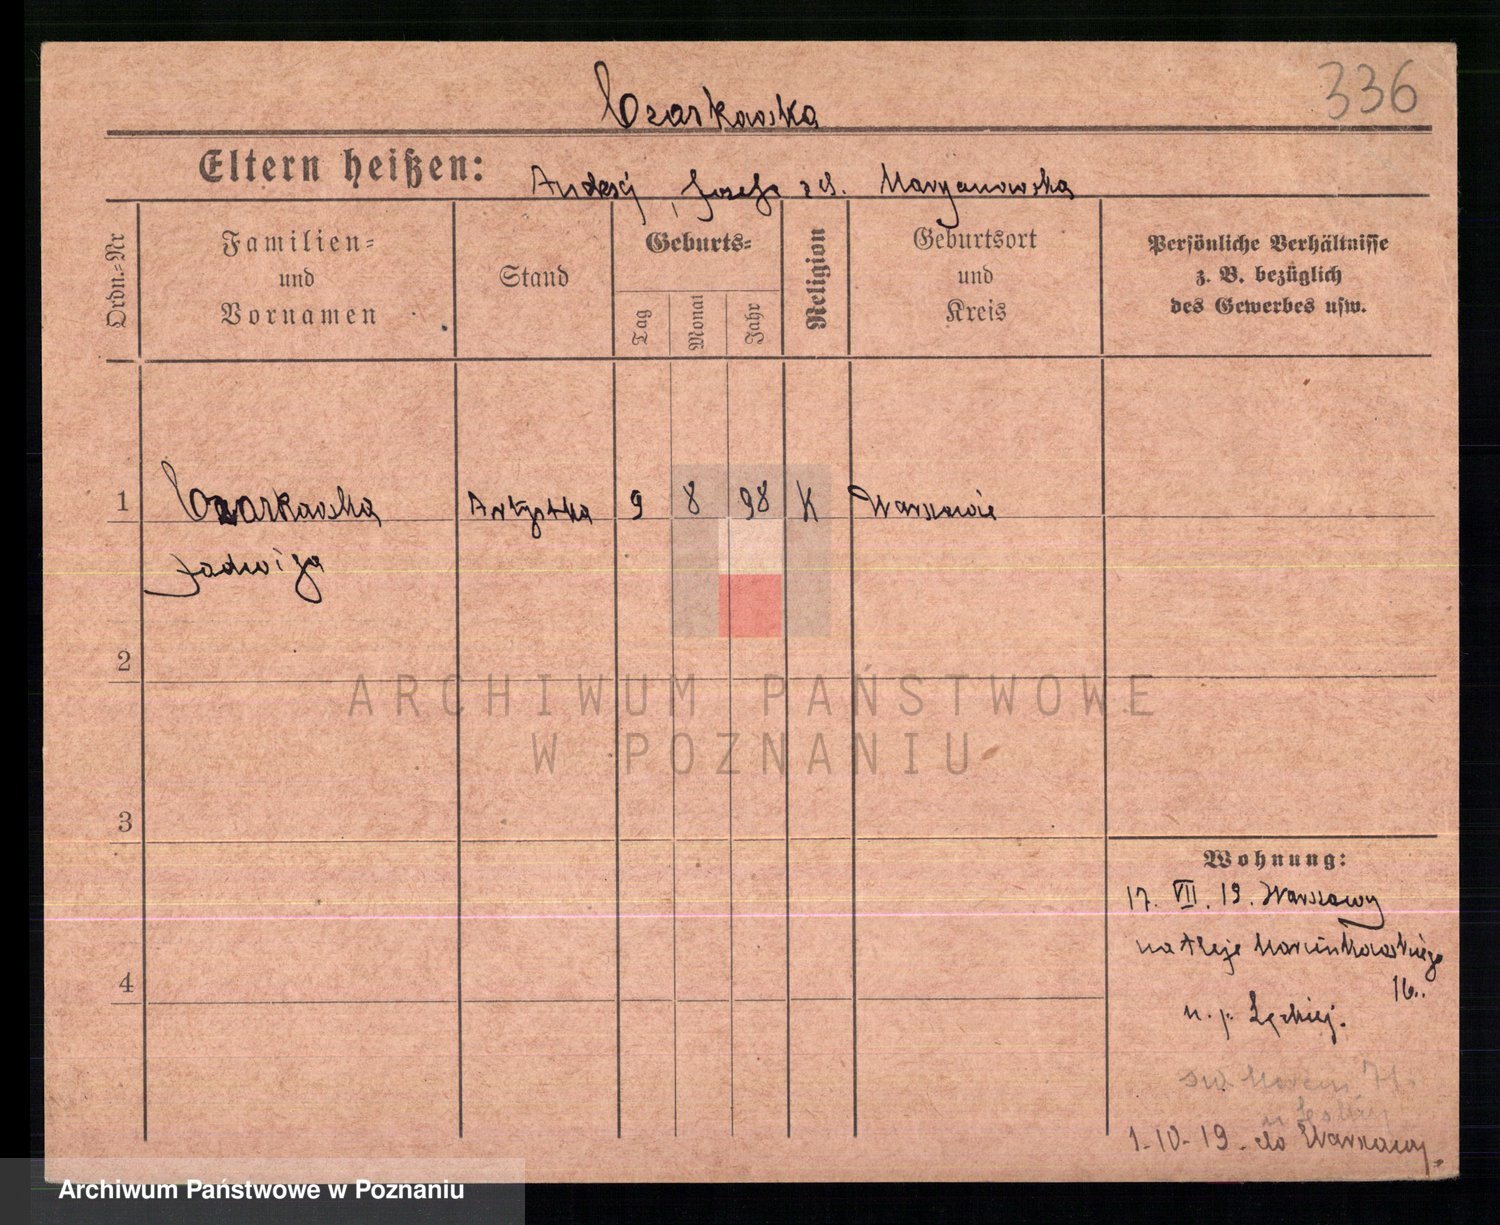 Czarkowska
336
Eltern heißen: Andrzej, Józefa z d. Maryanowska
Ordn.-Nr
Familien-
und
Vornamen
Stand
Geburts-
Tag
Monat
Jahr
Religion
Geburtsort
und
Kreis
Persönliche Verhältnisse
z. B. bezüglich
des Gewerbes usw.
1 Czarkowska Artystka 9 8 98 K Warszawie
Jadwiga
2
ARCHIWUM PAŃSTWOWE
W POZNANIU
3
Wohnung:
17. VII. 19. Warszawy
na Aleje Marcinkowskiego
16..
u. p.
4
św. Marcin
1-10-19. do Warszawy.
Archiwum Państwowe w Poznaniu